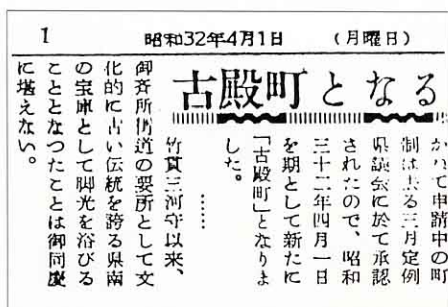 1
昭和32年4月1日
(月曜日)
古殿町となる
かねて申請中の町
制は去る三月定例
県議会に於て承認
されたので、昭和
三十二年四月一日
を期として新たに
「古殿町」となりま
した。
……
竹貫三河守以来、
御斉所街道の要所として文
化的に古い伝統を誇る県南
の宝庫として脚光を浴びる
こととなつたことは御同慶
に堪えない。